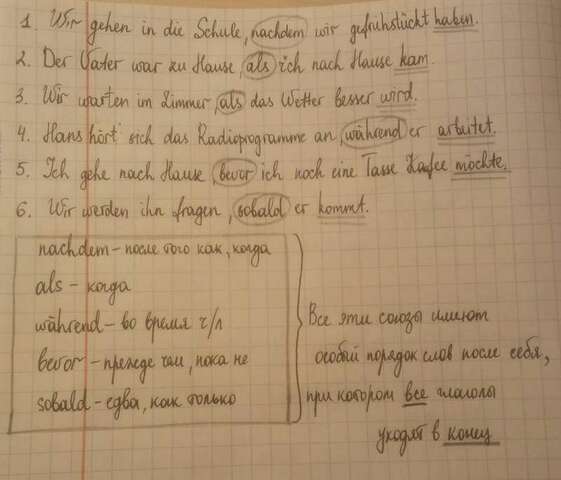 1. Wir gehen in die Schule, nachdem wir gefrühstückt haben.
2. Der Vater war zu Hause, als ich nach Hause kam.
3. Wir warten im Zimmer, als das Wetter besser wird.
4. Hans hört sich das Radioprogramme an, während er arbeitet.
5. Ich gehe nach Hause, bevor ich noch eine Tasse Kafee möchte.
6. Wir werden ihn fragen, sobald er kommt.
nachdem – после того как, когда
als – когда
während – во время ч/л
bevor – прежде чем, пока не
sobald – едва, как только
Все эти союзы имеют
особый порядок слов после себя,
при котором все глаголы
уходят в конец